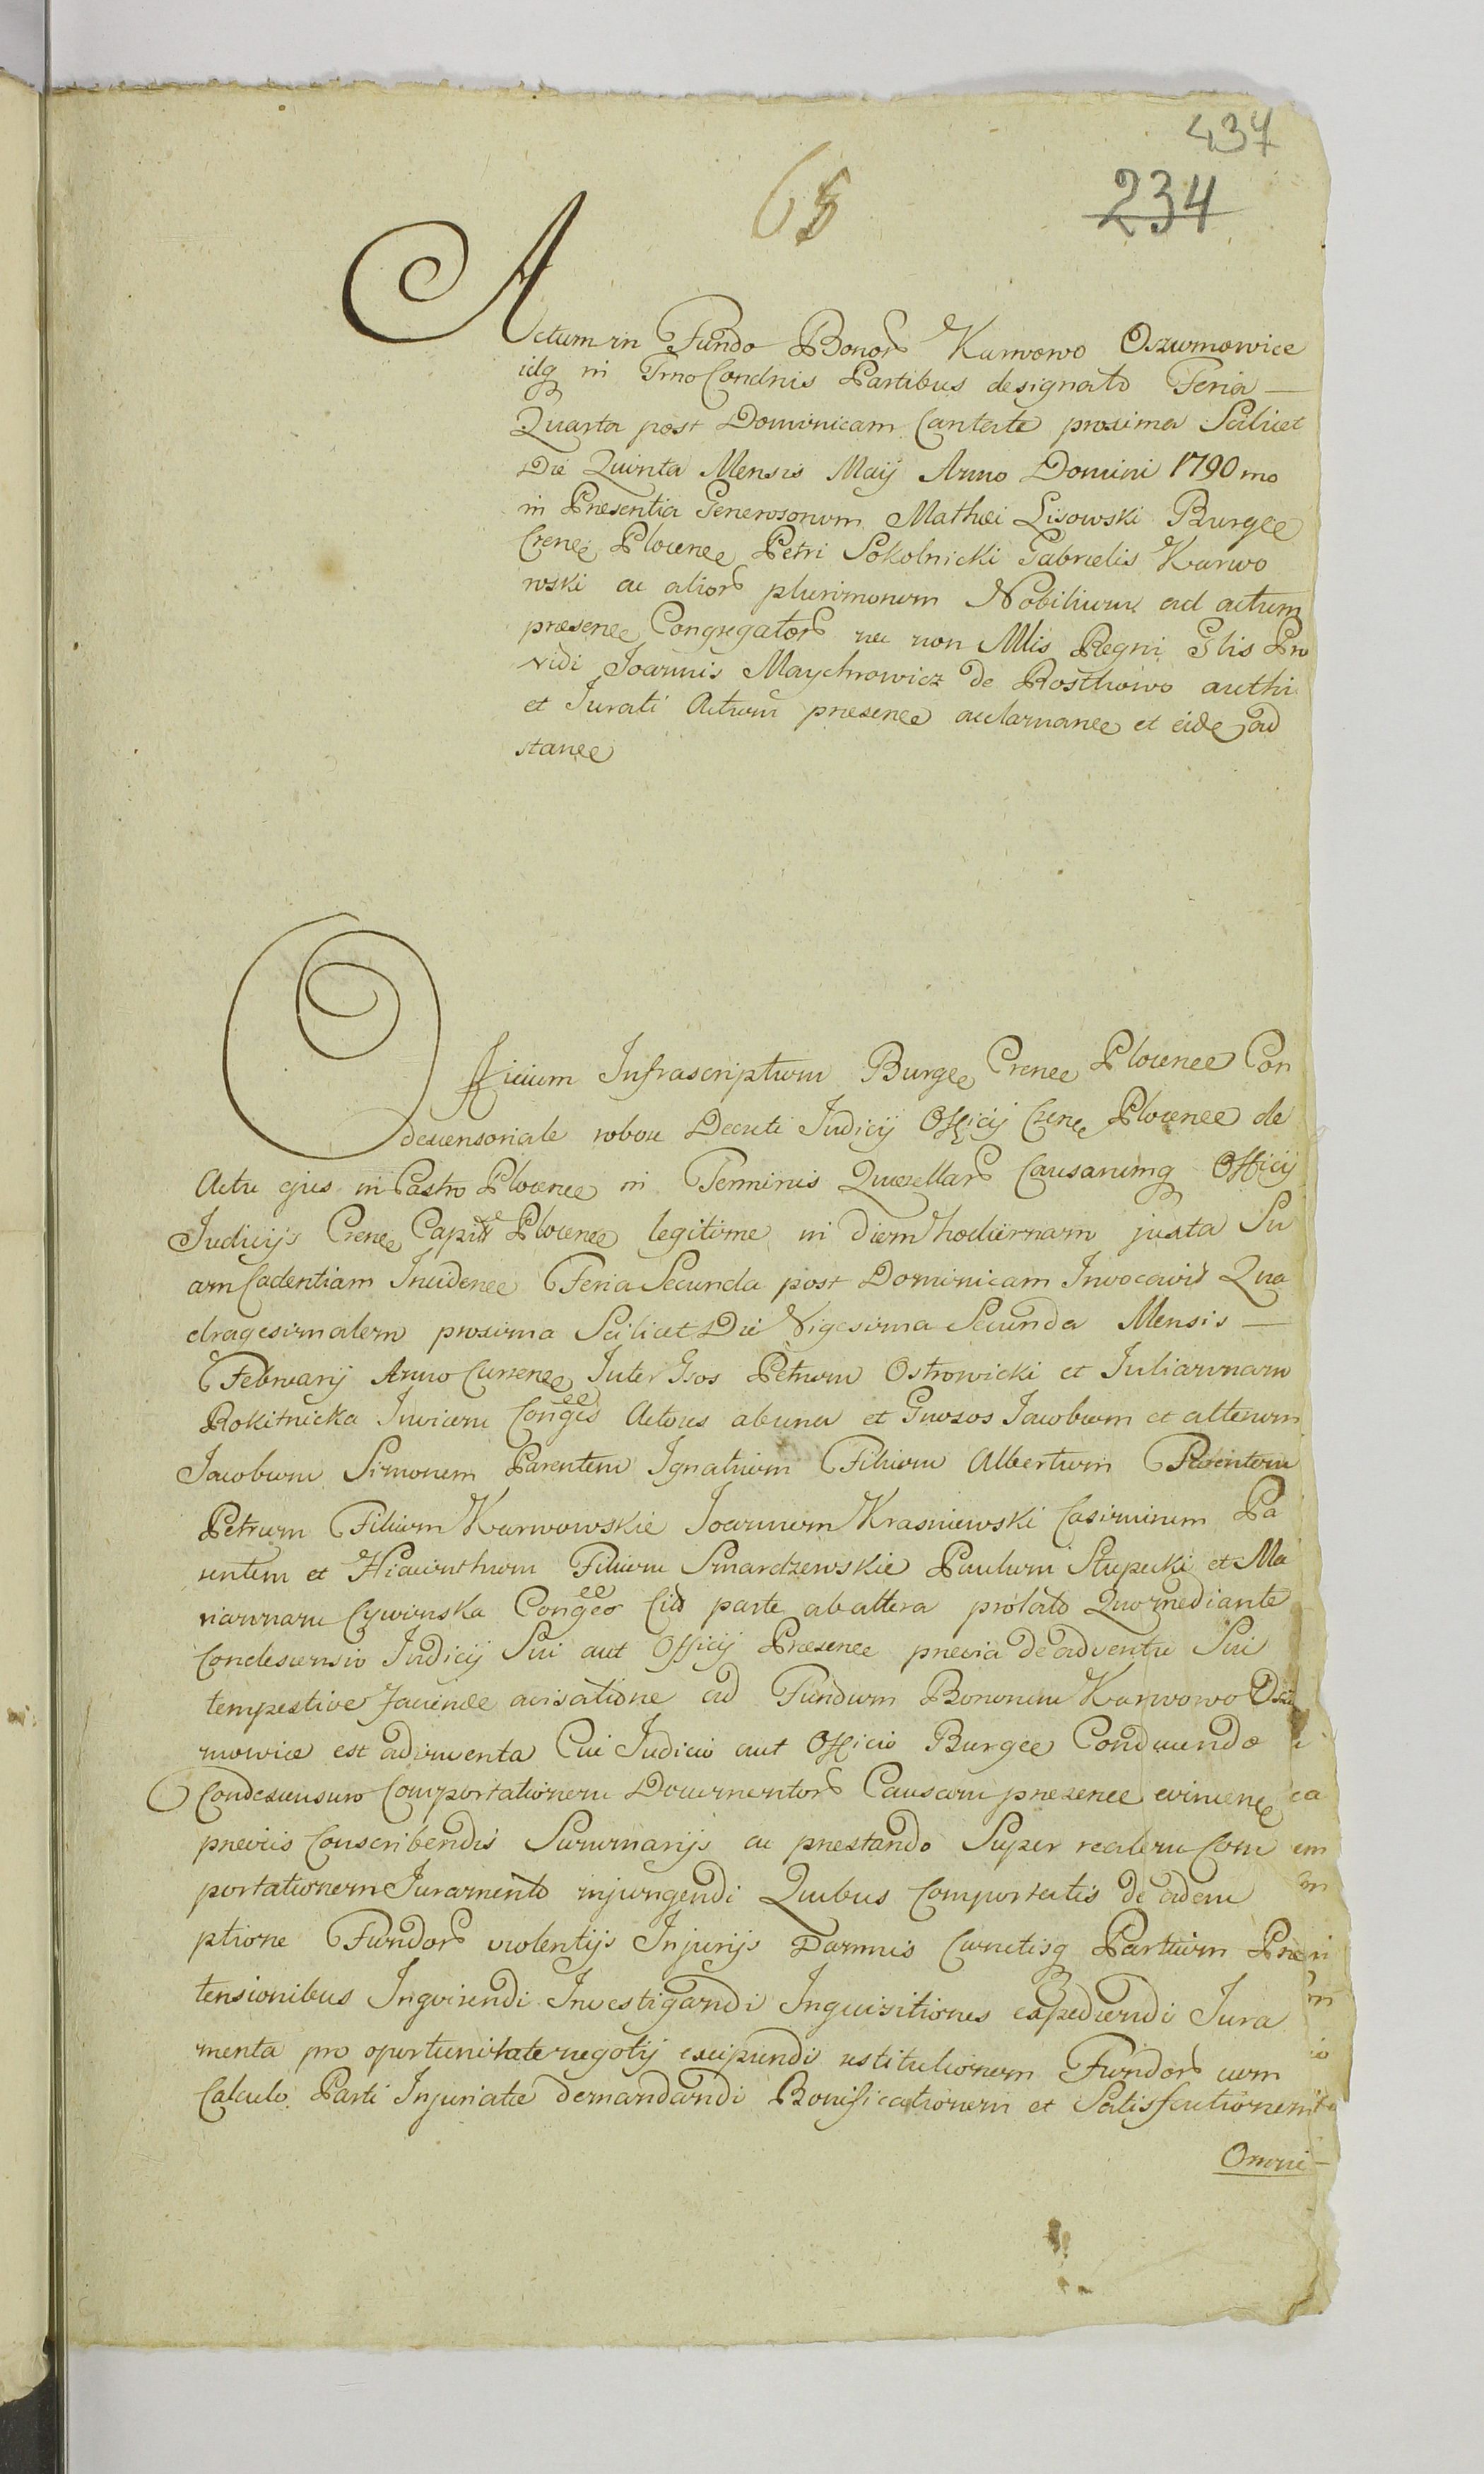 437
65
234
Actum in Fundo Bonor Karwowo Oszumowice
idq in Trno Condnis Partibus designato Feria —
Quarta post Dominicam Cantate proxima Scilicet
Die Quinta Mensis Maij Anno Domini 1790 mo
in Presentia Generosorum Mathei Lisowski Burgee
Crencis Plocenee Petri Sokolnicki Gabrielis Karwo
wski ac alior plurimorum Nobilium ad actum
praesenee Congregator nec non Mlis Regni Glis Pro
vidi Joannis Maychrowicz de Rosthowo authi
et Jurati Actum praesenee aclamanee et eide ad
stanee
Officium Infrascriptum Burgee Crenee Plocenee Con
descensoriale robore Decreti Judicij Officij Crenee Plocenee de
Actu ejus in Castro Plocenee in Terminis Querellar Causarumq Officij
Judicijs Crenee Capits Plocenee legitime in diem hodiernam juxta Su
am Cadentiam Incidenee Feria Secunda post Dominicam Invocavit Qua
dragesimalem proxima Scilicet Die Vigesima Secunda Mensis —
Februarij Anno Currenee Inter Gsos Petrum Ostrowicki et Juliannam
Rokitnicka Invicem Conges Actores ab una et Gnrsos Jacobum et alterum
Jacobum Simonem Parentem Ignatium Filium Albertum Parentem
Petrum Filium Karwowskie Joannem Krasniewski Casimirum Pa
rentem et Hiacinthum Filium Smardzewskie Paulum Stupecki et Ma
riannam Cywinska Conges Cit parte ab altera prolato Quo mediante
Condescensio Judicij Sui aut Officij Praesenee previa de adventu Sui
tempestive facienee avisatione ad Fundum Bonorum Karwowo Oszu
mowice est adinventa Cui Judicio aut Officio Burgee Conducendo
Condescensum Comportationem Documentor Causam praesenee evinence
previis Conscribendis Summarijs ac prestando Super realem Com
portationem Juramento injungendi Quibus Comportatis de adem
ptione Fundor violentijs Injurijs Damnis Cunctisq Partium Prae
tensionibus Inquirendi Investigandi Inquisitiones expediendi Jura
menta pro oportunitate negotij excipiendi restitutionem Fundor cum
Calculo Parti Injuriatae demandandi Bonificationem et Satisfactionem
Omni —